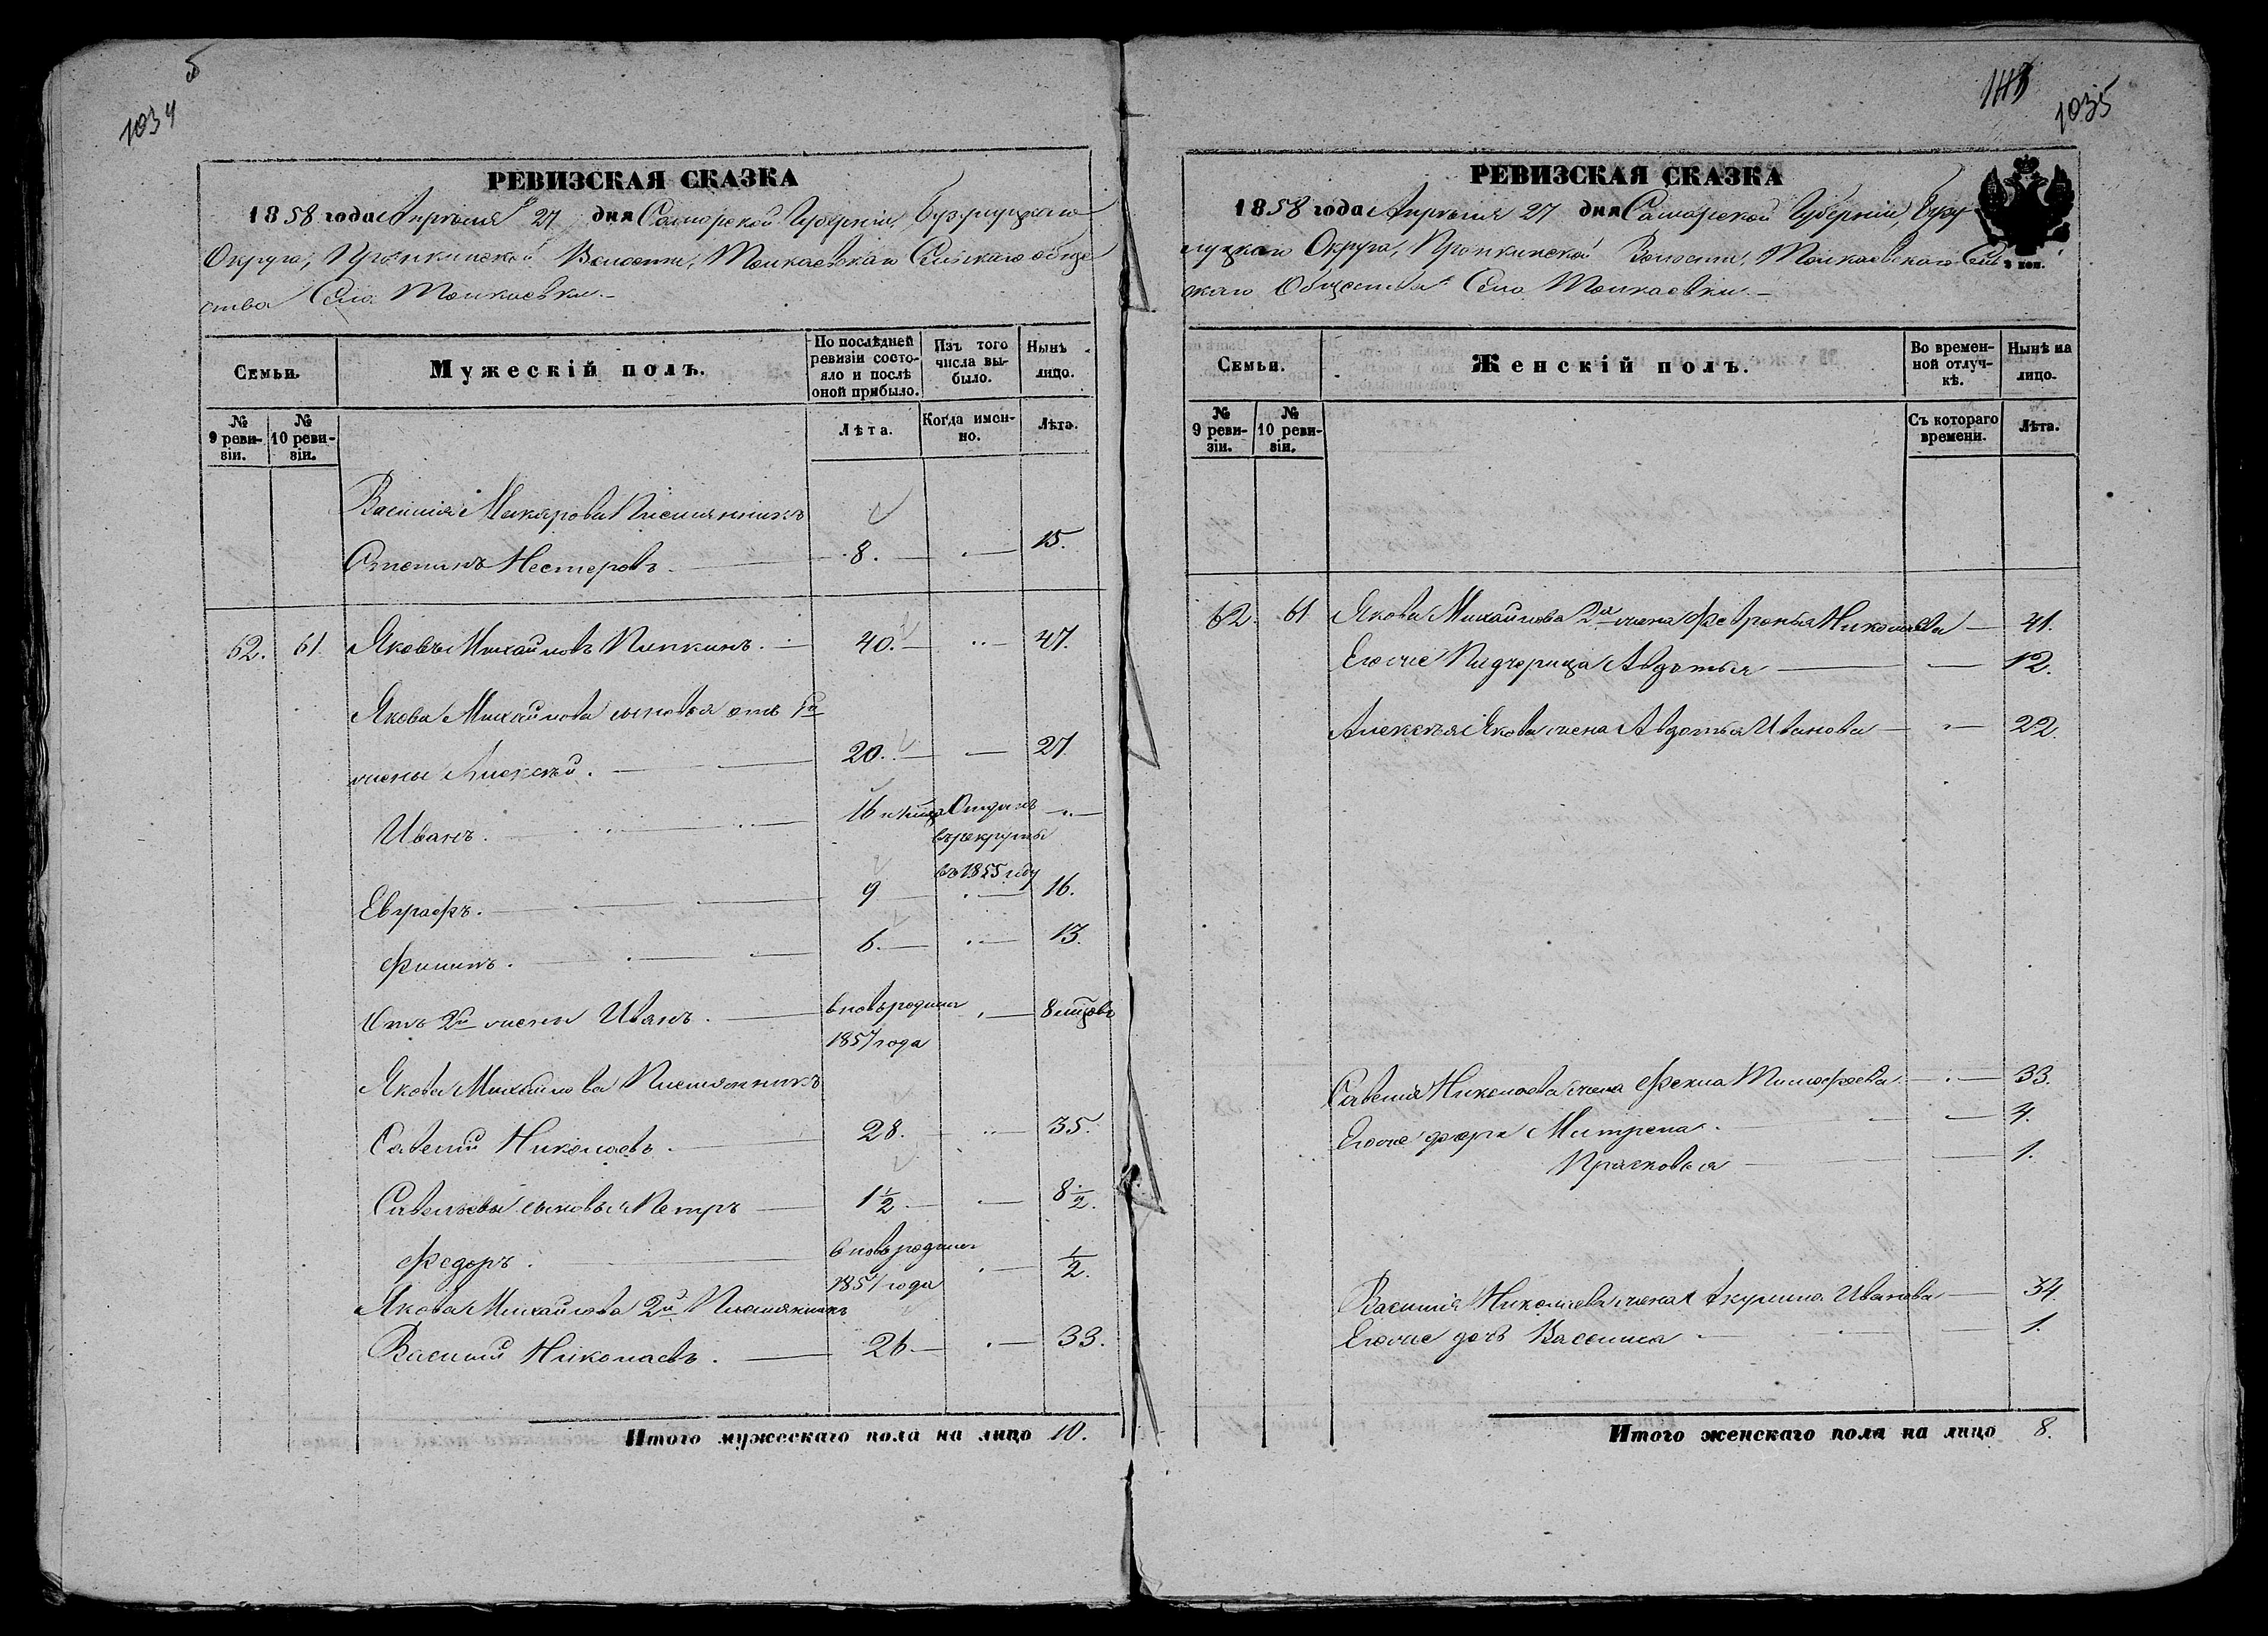 1034
РЕВИЗСКАЯ СКАЗКА
1858 года Апрѣля 27 дня Самарской Губерніи, Бузулуцкаго
Округа, Пронкинской Волости, Толкаевскаго Сельскаго обще
ства Села Толкаевки.
Семьи.
Мужескій полъ.
По послѣдней ревизіи состояло и послѣ оной прибыло.
Изъ того числа выбыло.
Нынѣ на лицо.
№ 9 ревизіи.
№ 10 ревизіи.
Лѣта.
Когда именно.
Лѣта.
Василія Макарова Племянникъ
Степанъ Нестеровъ 8. 15.
62. 61. Яковъ Михайловъ Пипкинъ. 40. 47.
Якова Михайлова сыновья отъ 1й
жены Алексѣй. 20. 27.
Иванъ. 16 Отданъ
въ рекруты
въ 1855 году
Евграфъ. 9 16.
Филипъ. 6. 13.
Отъ 2й жены Иванъ. вновь рожден 8 мѣсцовъ
1857 года
Якова Михайлова Племянникъ
Савелий Николаевъ. 28. 35.
Савельевы сыновья Петръ 1½ 8½.
Федоръ. вновь рожден ½.
1857 года
Якова Михайлова 2й Племянникъ
Василий Николаевъ. 26. 33.
Итого мужескаго пола на лицо 10.
1035
РЕВИЗСКАЯ СКАЗКА
1858 года Апрѣля 27 дня Самарской Губерніи, Бузу
луцкаго Округа, Пронкинской Волости, Толкаевскаго Сель
скаго Общества Села Толкаевки.
3 коп.
Семьи.
Женскій полъ.
Во временной отлучкѣ.
Нынѣ на лицо.
№ 9 ревизіи.
№ 10 ревизіи.
Съ котораго времени.
Лѣта.
62. 61 Якова Михайлова 2я жена Февронья Николаева 41.
Егоже Падчерица Авдотья 12.
Алексѣя Якова жена Авдотья Иванова 22.
Савелия Николаева жена Фекла Тимофеева 33.
Егоже дочери Матрена. 4.
Прасковья 1.
Василия Николаева жена Акулина Иванова 34.
Егоже дочь Васелиса 1.
Итого женскаго пола на лицо 8.